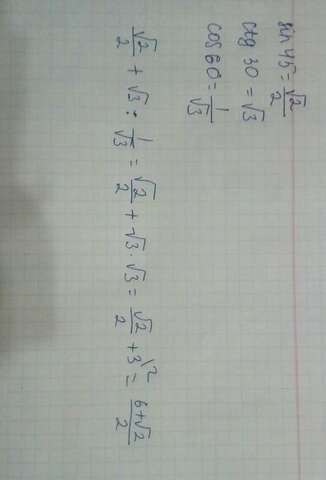 sin 45 = √2/2
ctg 30 = √3
cos 60 = 1/√3
√2/2 + √3 : 1/√3 = √2/2 + √3 · √3 = √2/2 + 3\2 = 6+√2/2